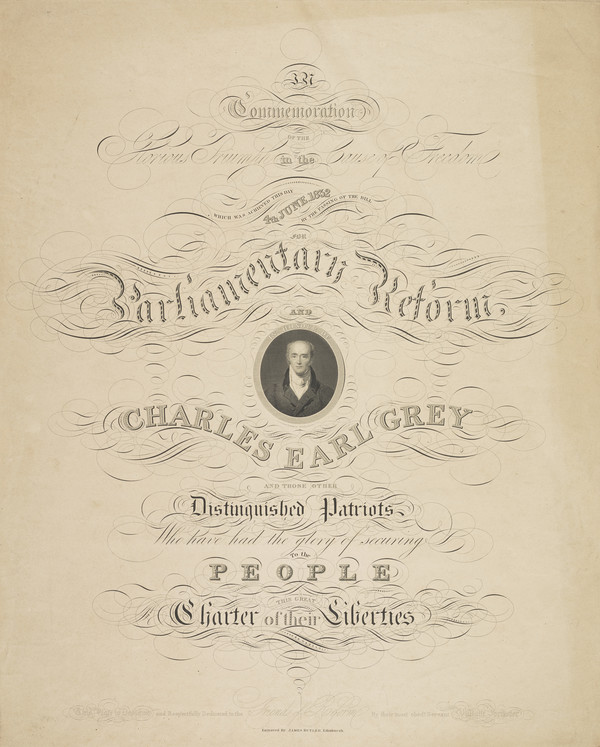 IN
Commemoration
OF THE
Glorious Triumph in the Cause of Freedom
WHICH WAS ACHIEVED THIS DAY 7th JUNE, 1832 BY THE PASSING OF THE BILL
FOR
Parliamentary Reform,
AND
CHARLES EARL GREY
AND THOSE OTHER
Distinguished Patriots
Who have had the glory of securing
To the
PEOPLE
THIS GREAT
Charter of their Liberties
and Respectfully Dedicated to the Friends of Reform By their most obedt. Servant
Engraved by JAMES